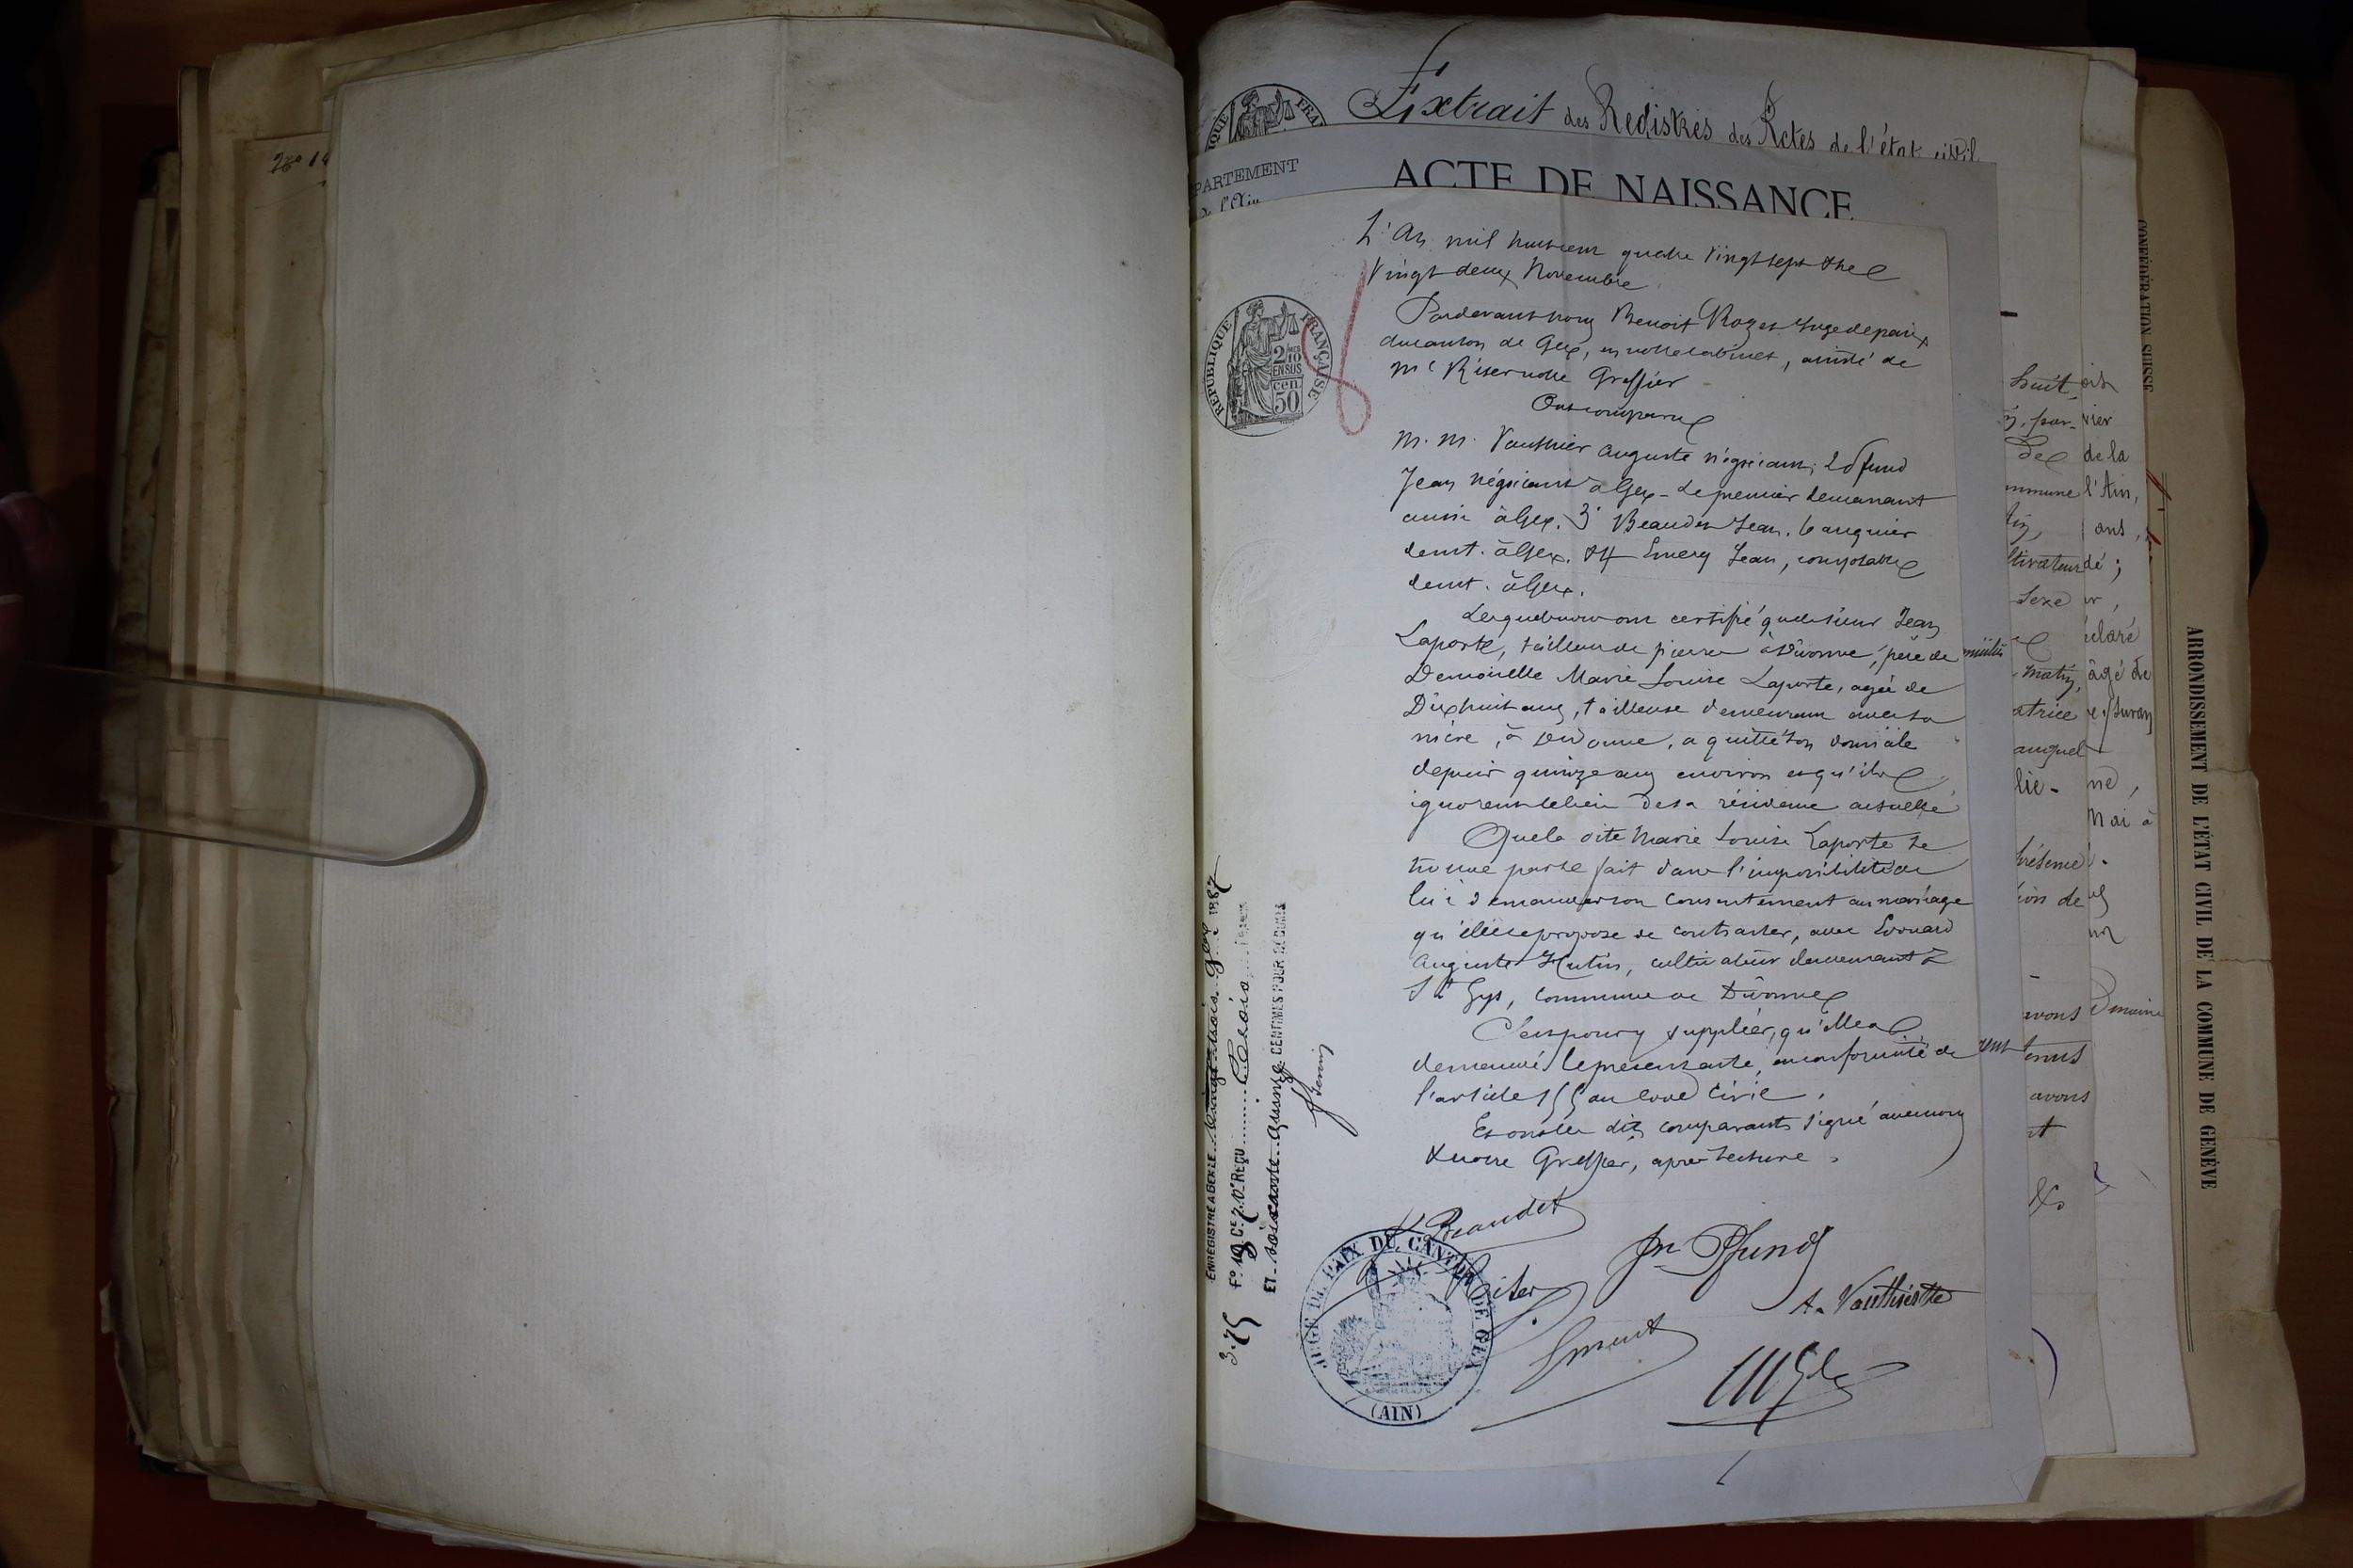 Extrait des Registres des Actes de l'état civil
PARTEMENT
de l'Ain
ACTE DE NAISSANCE
L'An mil huit cent quatre Vingt sept & le
Vingt deux Novembre
Pardevant nous Benoit Rozet Juge de paix
du canton de Gex, en notre cabinet, assisté de
Me Riter notre Greffier
Ont comparu
M. M. Vauthier Auguste négociant; 2° Pfund
Jean négociant à Gex - le premier demeurant
aussi à Gex. 3° Beaudet Jean, banquier
demt. à Gex. & 4 Emery Jean, comptable
demt. à Gex.
Lesquels nous ont certifié que le sieur Jean
Laporte, tailleur de pierre à Divonne, père de
Demoiselle Marie Louise Laporte, agée de
Dixhuit ans, tailleuse demeurant avec sa
mère, à Divonne, a quitté son domicile
depuis quinze ans environ et qu'ils
ignorent le lieu de sa résidence actuelle
Que la dite Marie Louise Laporte se
trouve par ce fait dans l'impossibilité de
lui demander son consentement au mariage
qu'elle se propose de contracter, avec Edouard
Auguste Hutin, cultivateur demeurant à
St Gys, commune de Divonne
C'est pour y suppléer, qu'elle a
demandé le présent acte, en conformité de
l'article 155 du Code Civil.
Et ont les dits comparants signé avec nous
& notre Greffier, après lecture.
J Beaudet
Riter
Jn Pfund
A. Vauthier
RÉPUBLIQUE FRANÇAISE
2/10
EN SUS
cen
50
JUGE DE PAIX DU CANTON DE GEX
(AIN)
ENREGISTRÉ A GEX LE vingt trois 9bre 1887
F° 19 Ce 7. RECU
ET soixante quinze CENTIMES POUR DÉCIMES
3.75
CONFÉDÉRATION SUISSE
ARRONDISSEMENT DE L'ÉTAT CIVIL DE LA COMMUNE DE GENÈVE
huit
de la
l'Ain,
ans,
Sexe
âgé de
auquel
Mai à
avons
avons